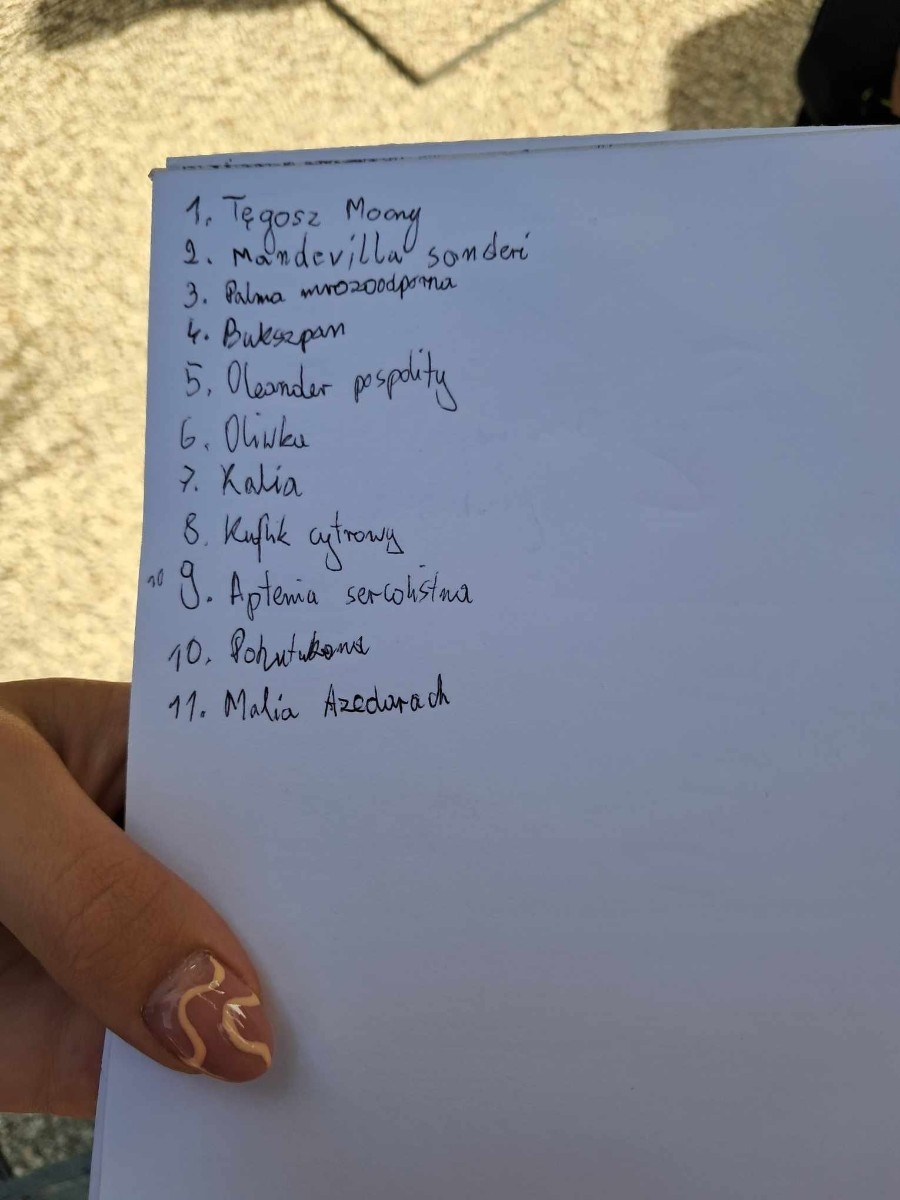 1. Tęgosz Mocny
2. Mandevilla sanderi
3. Palma mrozoodporna
4. Bukszpan
5. Oleander pospolity
6. Oliwka
7. Kalia
8. Kuflik cytrowy
10 9. Aptenia sercolistna
10. Pohutukawa
11. Malia Azedarach